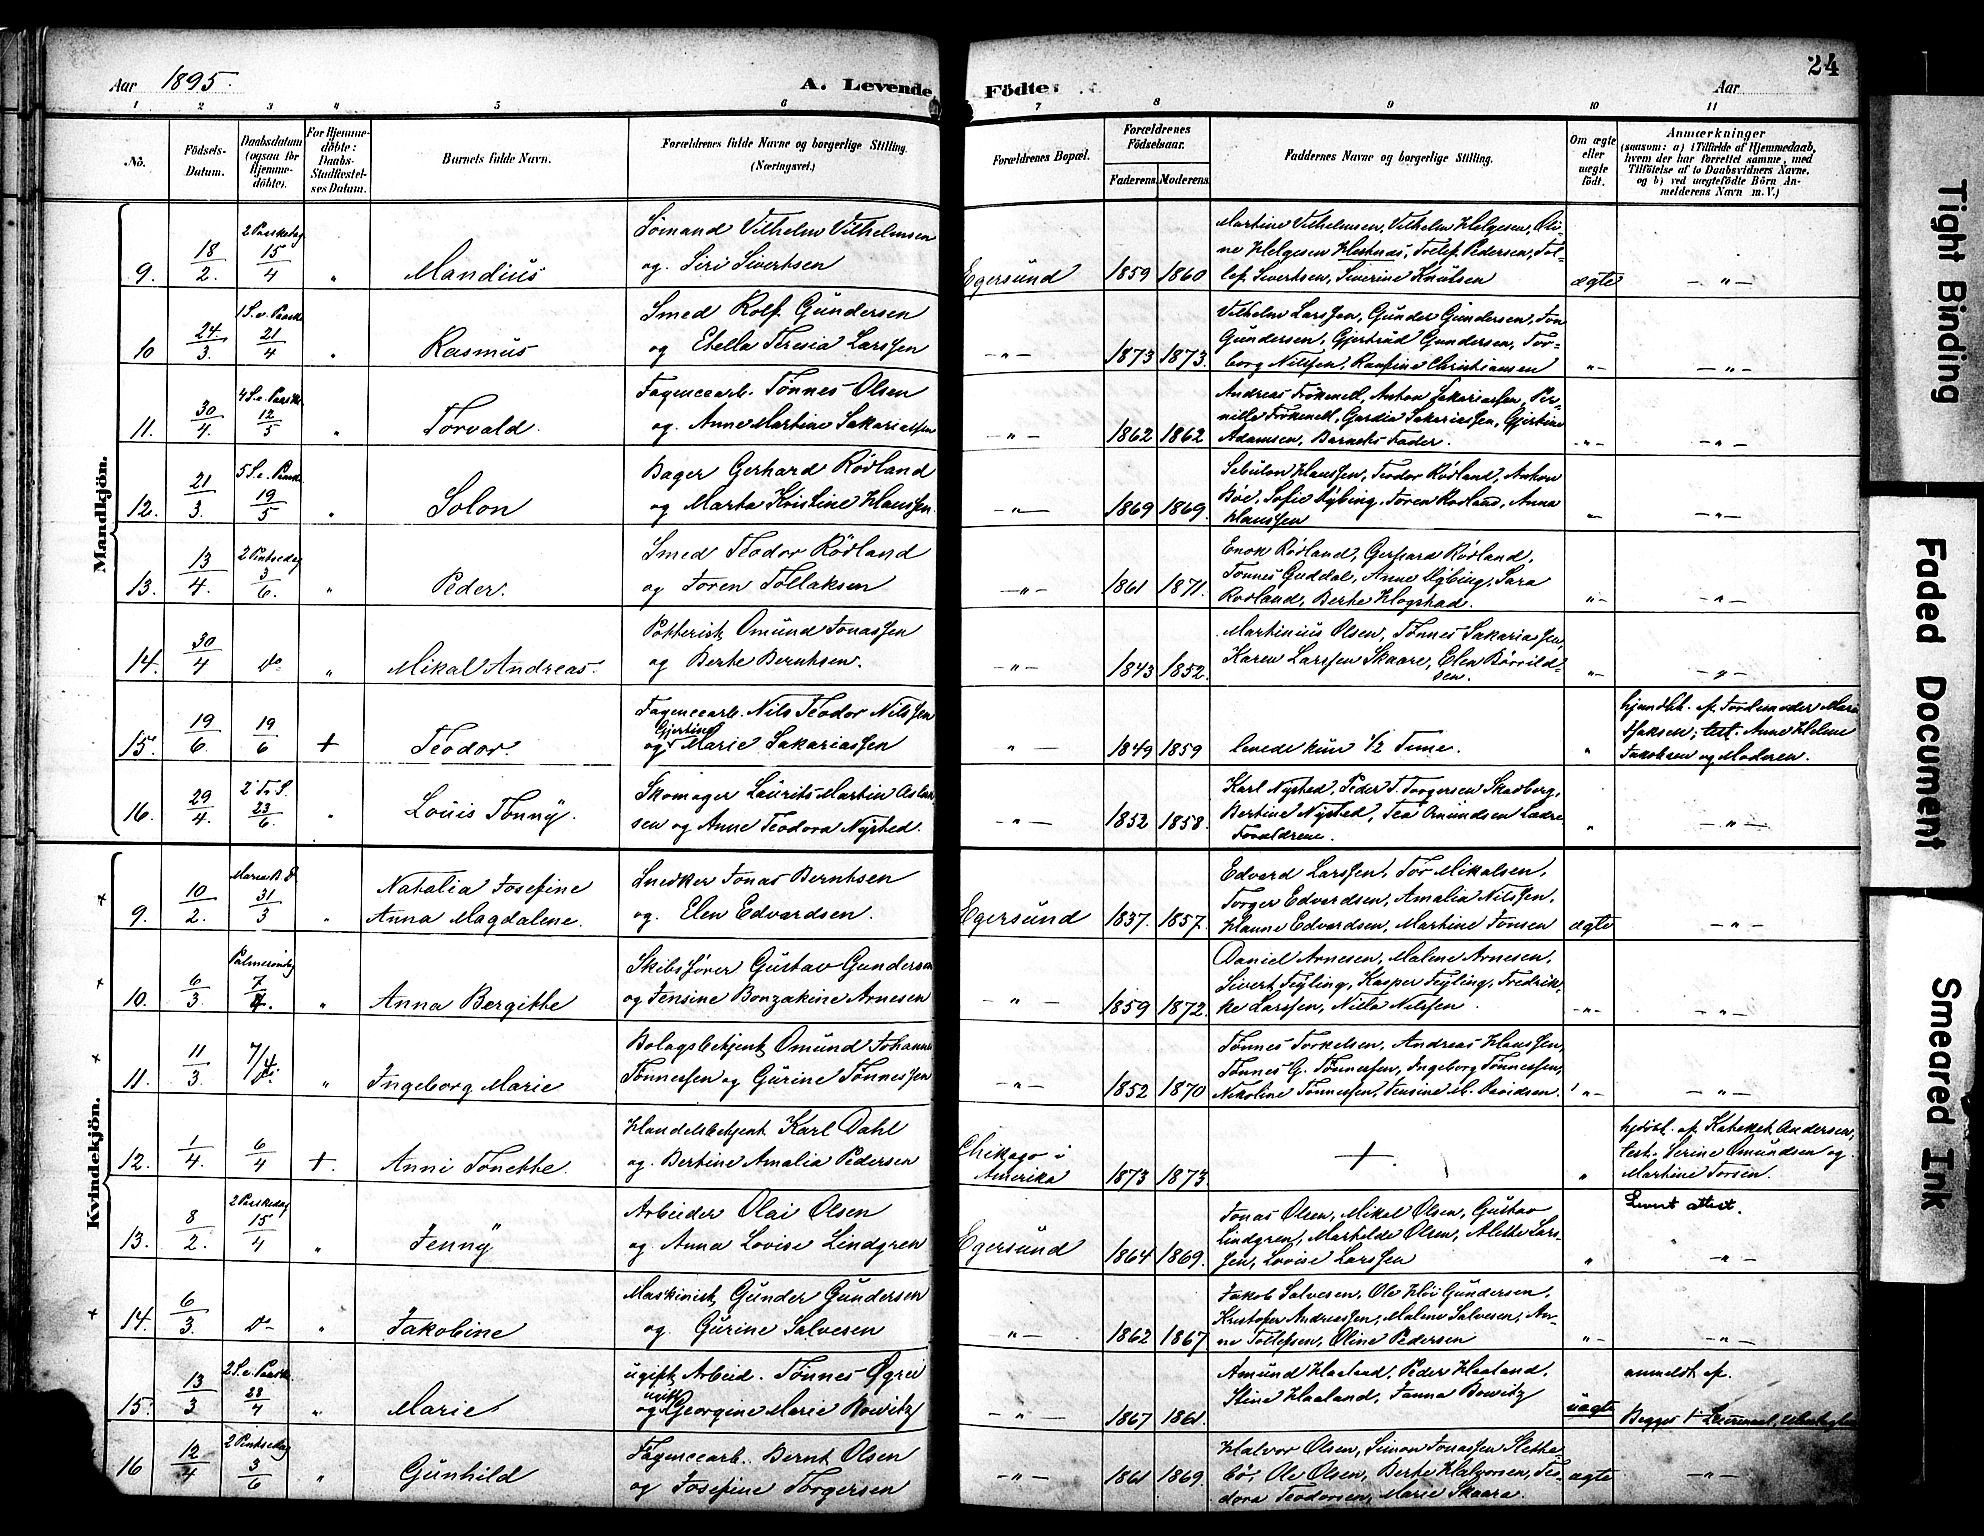 24
Aar 1895. A. Levende Födte: Aar
1 2 3 4 5 6 7 8 9 10 11
No. Födsels-Datum. Daabsdatum (ogsaa for Hjemme-döbte). For Hjemme-döbte: Daabs-Stadfæstel-ses Datum. Barnets fulde Navn. Forældrenes fulde Navne og borgerlige Stilling. (Næringsvei.) Forældrenes Bopæl. Forældrenes Födselsaar. Faderens. Moderens. Faddernes Navne og borgerlige Stilling. Om ægte eller uægte födt. Anmærkninger (saasom: a) i Tilfælde af Hjemmedaab, hvem der har forrettet samme, med Tilföielse af to Daabsvidners Navne, og b) ved uægtefödte Börn An-melderens Navn m. V.)
Mandkjön.
9. 18/2. 2 Paaskedag 15/4 " Mandius
Sømand Vilhelm Vilhelmsen
og Siri Sivertsen
Egersund 1859 1860
Martine Vilhelmsen, Vilhelm Helgesen, Oli-
ne Helgesen Hestnæs, Tollef Pedersen, Tol-
lef Sivertsen, Severine Knutsen
ægte — " —
10 24/3. 1 S. e. Paaske 21/4 " Rasmus
Smed Rolf Gundersen
og Etella Teresia Larssen
— " — 1873 1873.
Vilhelm Larssen, Gunder Gundersen, Jon
Gundersen, Gjertrud Gundersen, Tor-
borg Nilssen, Christiansen
" — — " —
11. 30/4. 4 S. e. Paaske 12/5 " Torvald.
Fayencearb. Tønnes Olsen
og Anne Martine Sakariassen
— " — 1862 1862
Andreas Frøkmell, Anton Sakariassen, Per-
nille Frøkmell, Gurdia Sakariassen, Gjertine
Adamsen, Barnets Fader.
" — — " —
12. 21/3. 5 S. e. Paaske 19/5 " Solon
Bager Gerhard Rødland
og Marta Kristine Hanssen
— " — 1869 1869.
Sebulon Hanssen, Teodor Rødland, Anton
Bøe, Sofie Nybing, Joren Rødland, Anna
Hanssen
" — — " —
13. 13/4. 2 Pintsedag 3/6. " Peder.
Smed Teodor Rødland
og Joren Tollaksen
— " — 1861 1871.
Enok Rødland, Gerhard Rødland,
Tønnes Guddal, Anne Nybing, Sara
Rødland, Berte Hogstad.
" — — " —
14. 30/4 do " Mikal Andreas.
Potterist Omund Jonassen
og Berte Berntsen.
— " — 1843 1852.
Martinius Olsen, Tønnes Sakariassen,
Karen Larssen Skaare, Elen Børrild-
sen.
" — — " —
15. 19/6. 19/6 + Teodor.
Fayencearb. Nils Teodor Nilssen
og Gjertine Marie Sakariassen
" — 1849 1859
levede kun 1/2 Time.
"
hjemdbt. af Jordemoder Maria
Isaksen; test. Anne Helene
Jakobsen og Moderen.
16. 29/4. 2 Tr. S. 23/6. " Louis Tonny.
Skomager Laurits Martin Aslak-
sen og Anne Teodora Nysted.
— " — 1852 1858.
Karl Nysted, Peder T. Torgersen Skadberg,
Bertine Nysted, Tea Omundsen Ladre
Forældrene.
" — " —
Kvindekjön.
× 9. 10/2. Maria B. D. 31/3 " Natalia Josefine
Anna Magdalene.
Snedker Jonas Berntsen
og Elen Edvardsen.
Egersund 1837. 1857.
Edvard Larssen, Tor Mikalsen,
Torger Edvardsen, Amalia Nilssen,
Hanne Edvardsen, Martine Jonsen
ægte — " —
× 10. 6/3. Palmesøndag 7/4. " Anna Bergitte
Skibsfører Gustav Gundersen
og Jensine Bonzakine Arnesen
— " — 1859 1872.
Daniel Arnesen, Malene Arnesen,
Sivert Feyling, Kasper Feyling, Fredrik-
ke Larssen, Niela Nilssen
— " — — " —
× 11. 11/3. 7/4. " Ingeborg Marie
Bolagsbetjent Omund Johannes
Tønnessen og Gurine Tønnessen
— " — 1852 1870
Tønnes Torkelsen, Andreas Hanssen,
Tønnes G. Tønnessen, Ingeborg Tønnessen,
Nikoline Tønnessen, Jensine M. Davidsen.
" — — " —
12. 1/4. 6/4 +. Anni Tonette.
Handelsbetjent Karl Dahl
og Bertine Amalia Pedersen
Chikago i
Amerika 1873 1873.
+.
"
hjdöbt. af Kateket Andersen,
test. Serine Omundsen og
Martine Torsen.
13. 8/2. 2 Paaskedag 15/4 " Jenny
Arbeider Olai Olsen
og Anna Lovise Lindgren
Egersund 1864 1869.
Jonas Olsen, Mikal Olsen, Gustav
Lindgren, Mathilde Olsen, Alette Lars-
sen, Lovise Larssen
" Levert attest.
— " —
× 14. 6/3. do " Jakobine
Maskinist Gunder Gundersen
og Gurine Salvesen
— " — 1862 1867
Jakob Salvesen, Ole Høi Gundersen,
Kristofer Andreassen, Malene Salvesen, An-
ne Tollefsen, Oline Pedersen
" — — " —
15. 13/3 2 S. e. Paaske 28/4 " Marie
ugift Arbeid. Tønnes Øgrei
og ugift Georgine Marie Bowitz
— " — 1867 1861.
Amund Haaland, Peder Haaland,
Stine Haaland, Janna Bowitz
uægte
anmeldt af.
Begges 1ste Leiermaal,
16 12/4 2 Pintsedag 3/6 " Gunhild
Fayencearb. Bernt Olsen
og Josefine Torgersen
— " — 1861 1869.
Halvor Olsen, Simon Jonassen Slette-
bø, Ole Olsen, Berte Halvorsen, Teo-
dora Teodorsen, Marie Skaara.
ægte — " —
Tight Binding
Faded Document
Smeared Ink